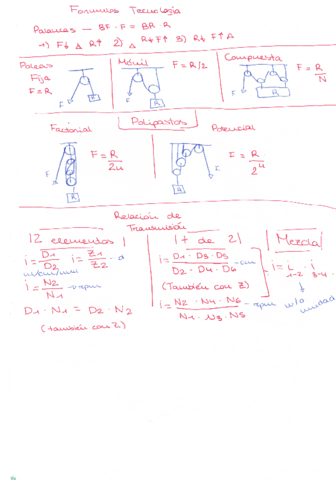 Formulas Tecnología
Palancas — BF · F = BR · R
1) F↓ △ R↑ 2) △ R↓ F↑ 3) R↓ F↑ △
Poleas
Fija
F = R
F
R
Móvil
F = R/2
F
R
Compuesta
F = R/N
F
R
Polipastos
Factorial
F = R/2n
F
R
Potencial
F = R/2^n
F
R
Relación de
Transmisión
|2 elementos|
i = D1/D2 i = Z1/Z2
i = N2/N1 → rpm
D1 · N1 = D2 · N2
(también con Z)
|+ de 2|
i = D1 · D3 · D5 / D2 · D4 · D6 – cm
(También con Z)
i = N2 · N4 · N6 / N1 · N3 · N5 – rpm
Mezcla
i = i 1-2 · i 3-4